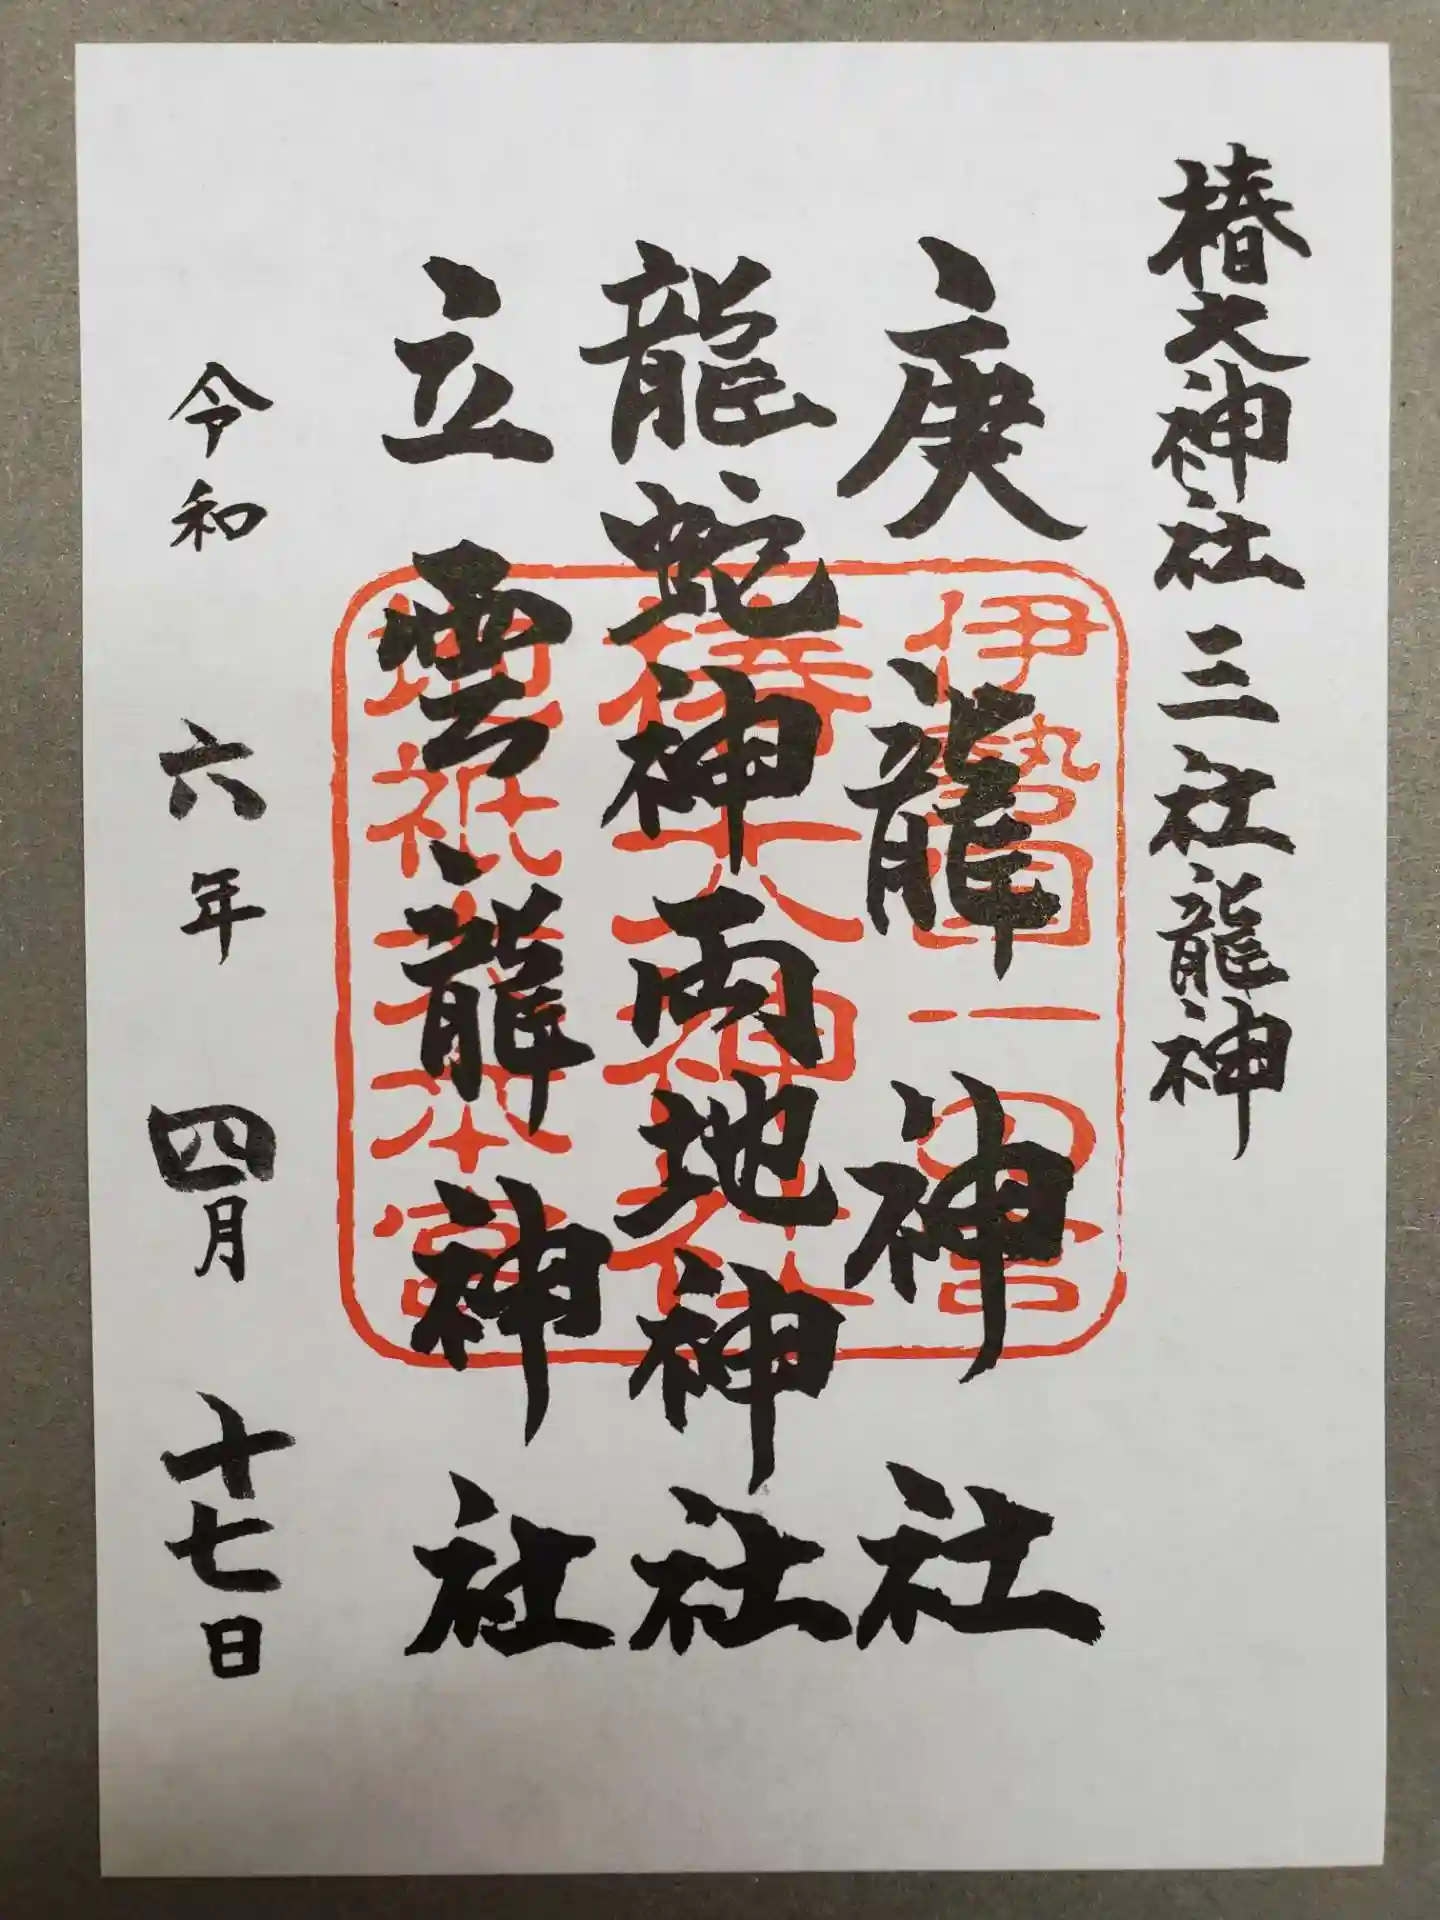 椿大神社 三社龍神
庚龍神社
龍蛇神両地神社
立雲龍神社
令和 六年 四月 十七日
伊勢国一の宮
椿大神社
地祇大本宮